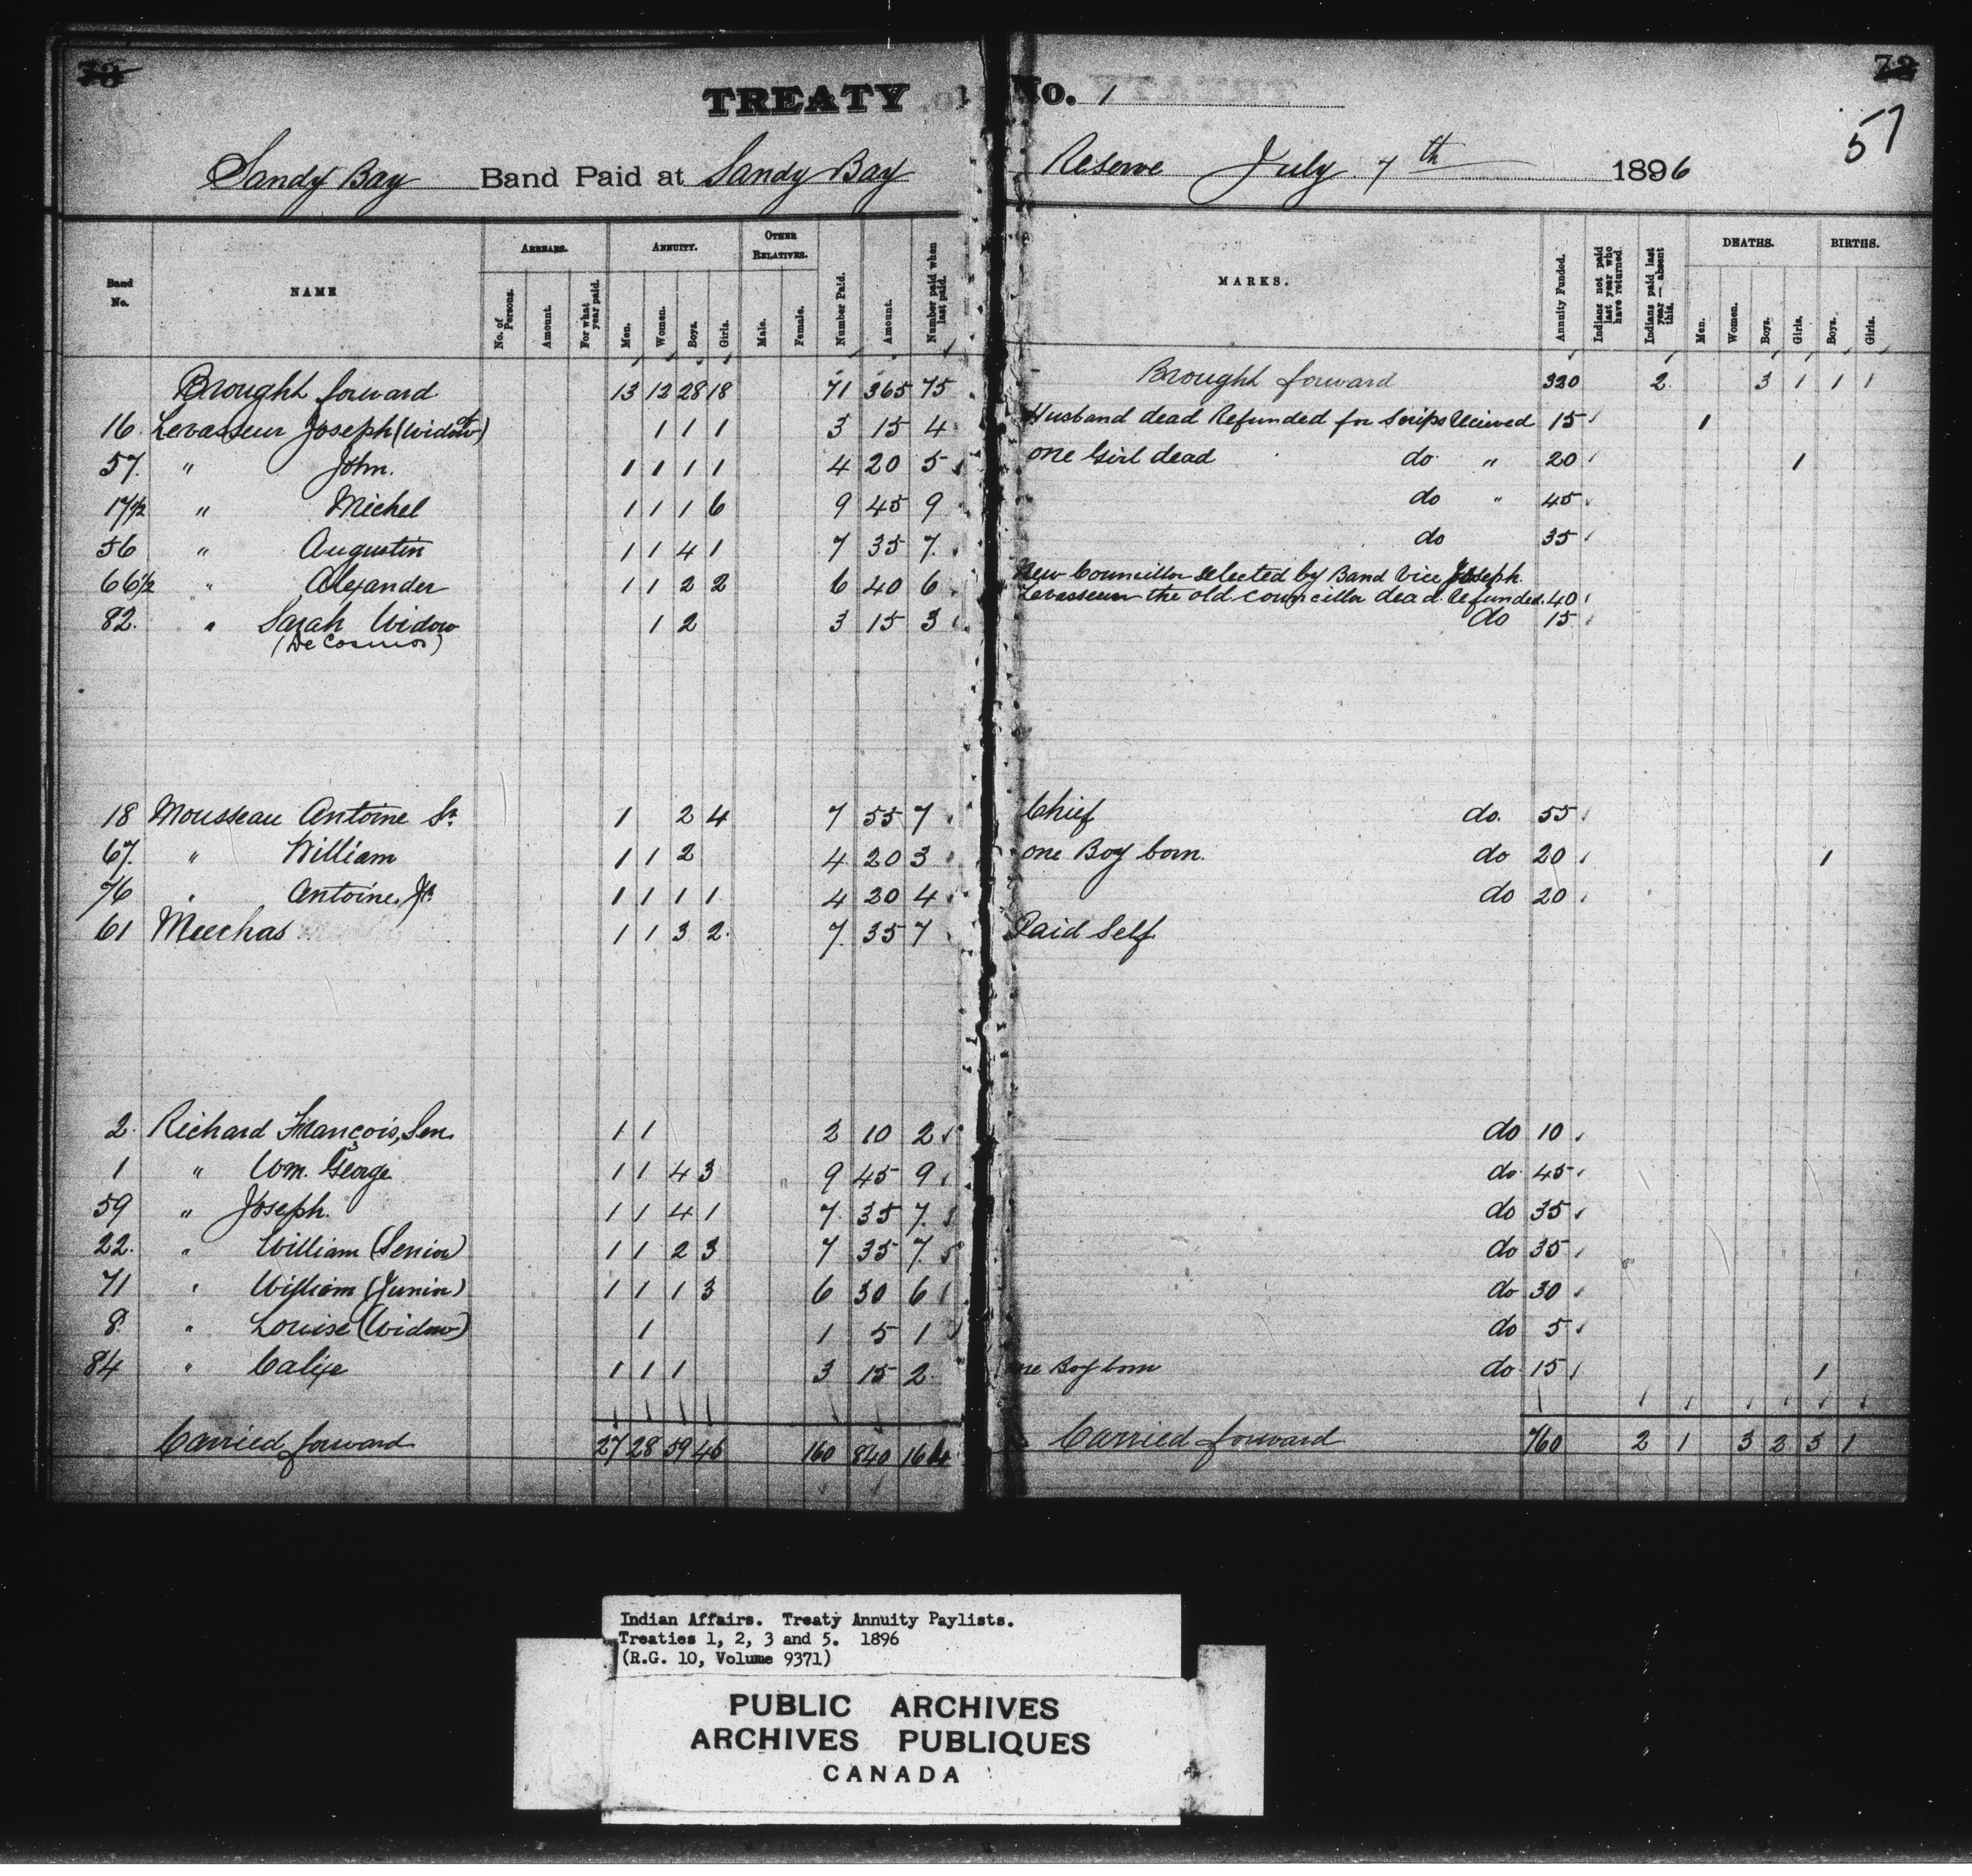 73
72
57
TREATY No. 1
Sandy Bay Band Paid at Sandy Bay Reserve July 7th 1896
Band No. NAME ARREARS. No. of Persons. Amount. For what year paid. ANNUITY. Men. Women. Boys. Girls. OTHER RELATIVES. Male. Female. Number Paid. Amount. Number paid when last paid. MARKS. Annuity Funded. Indians not paid last year who have returned. Indians paid last year — absent this. DEATHS. Men. Women. Boys. Girls. BIRTHS. Boys. Girls.
Brought forward 13 12 28 18 71 365 75 Brought forward 320 2 3 1 1 1
16 Levasseur Joseph (Widow of) 1 1 1 3 15 4 Husband dead Refunded for Scrips Received 15 1
57. " John. 1 1 1 1 4 20 5 one Girl dead do " 20 1
17½ " Michel 1 1 1 6 9 45 9 do " 45
56 " Augustin 1 1 4 1 7 35 7. do 35
66½ " Alexander 1 1 2 2 6 40 6 New Councillor selected by Band Vice Joseph
Levasseur the old councillor dead. Refunded. 40
82. " Sarah Widow 1 2 3 15 3 do 15
(De Cosmos)
18 Mousseau Antoine Sr. 1 2 4 7 55 7 Chief do. 55
67. " William 1 1 2 4 20 3 one Boy born. do 20 1
76 " Antoine, Jr. 1 1 1 1 4 20 4 do 20
61 Meechas 1 1 3 2. 7. 35 7 Paid Self.
2. Richard François, Sen. 1 1 2 10 2 do 10
1 " Wm. George 1 1 4 3 9 45 9 do 45
59 " Joseph. 1 1 4 1 7. 35 7. do 35
22. " William (Senior) 1 1 2 3 7 35 7. do 35
71 " William (Junior) 1 1 1 3 6 30 6 do 30
8. " Louise (Widow) 1 1 5 1 do 5
84 " Calixe 1 1 1 3 15 2 one Boy born do 15 1
Carried forward 27 28 59 46 160 840 164 Carried forward 760 2 1 3 2 3 1
Indian Affairs. Treaty Annuity Paylists.
Treaties 1, 2, 3 and 5. 1896
(R.G. 10, Volume 9371)
PUBLIC ARCHIVES
ARCHIVES PUBLIQUES
CANADA